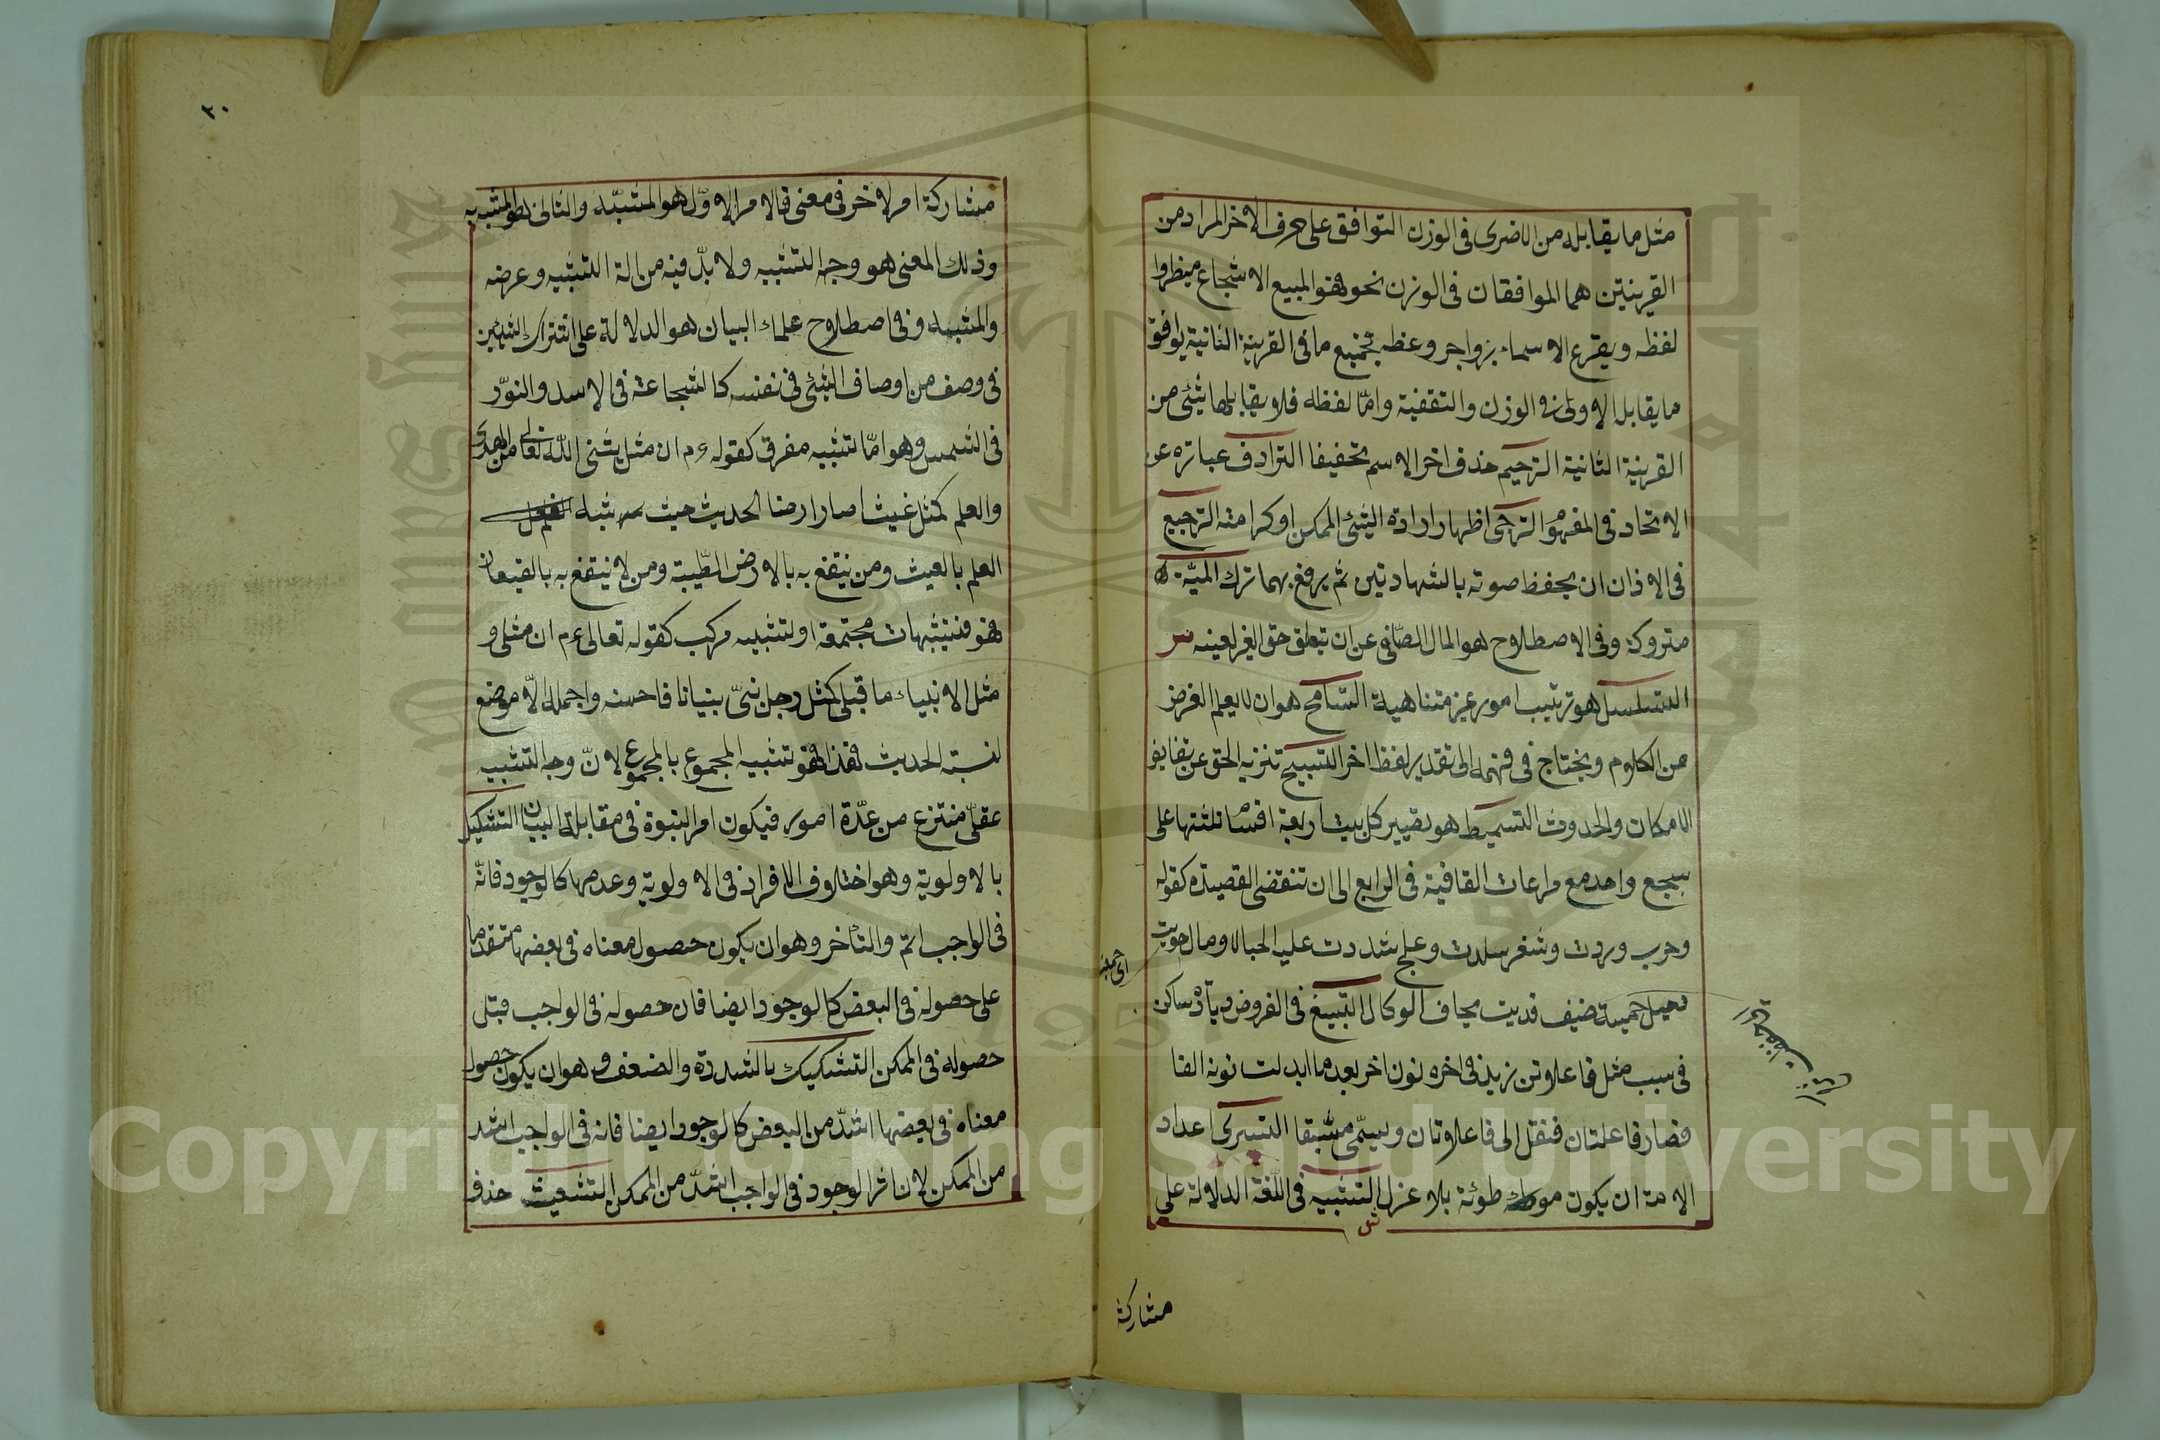 مثل ما يقابله من الاخرى فى الوزن التوافق على حرف الاخر المراد من
القرينتين هما الموافقان فى الوزن نحو فهو المبيع الاشجاع
لفظه ويقرع الاسماء بزواجر وعظه فجميع ما فى القرينة الثانية يوافق
ما يقابل الاولى فى الوزن والتقفية واما لفظه فلا يقابلها شئ من
القرينة الثانية الترخيم حذف اخر الاسم تخفيفا الترادف عبارة عن
الاتحاد فى المفهوم الترجى اظهار ارادة الشئ الممكن او كرامته الترجيع
فى الاذان ان يخفض صوته بالشهادتين ثم يرفع بهما تركة الميّت
متروكه وفى الاصطلاح هو المال الصّافى عن ان تعلق حق الغير بعينه س
التسلسل هو ترتيب امور غير متناهية التسامح هو ان لا يعلم الغرض
من الكلام ويحتاج فى فهمه الى تقدير لفظ اخر التسبيح تنزيه الحق عن نقايص
الامكان والحدوث التسميط هو تصيير كل بيت اربعة اقسام ثلثتها على
سجع واحد مع مراعات القافية فى الرابع الى ان تنقضى القصيدة كقوله
وحرب وردت وثغر سددت وعلج شددت عليه الحبالا ومال حويت
وخيل حميت وضيف قريت يخاف الوكال التسبيغ فى العروض زيادة ساكن
فى سبب مثل فاعلاتن زيد فى اخره نون اخر بعد ما ابدلت نونه الفا
فصار فاعلتان فنقل الى فاعلاتان ويسمّى مسبّغا التسرى اعداد
الامة ان يكون موطوئة بلا عزل التشبيه فى اللّغة الدلالة على
ش
مشاركة
اى حميته
٣٠
مشاركة امر لاخر فى معنى فالامر الاوّل هو المشبّه والثانى هو المشبه به
وذلك المعنى هو وجه التشبيه ولا بدّ فيه من الة التشبيه وغرضه
والمشبه وفى اصطلاح علماء البيان هو الدلالة على اشتراك الشيئين
فى وصف من اوصاف الشئ فى نفسه كالشجاعة فى الاسد والنوّر
فى الشمس وهو امّا تشبيه مفرق كقوله ءم ان مثل ما بعثنى اللّه تعالى من الهدى
والعلم كمثل غيث اصار ارضا الحديث حيث شبه
العلم بالغيث ومن ينتفع به بالارض الطّيبة ومن لا ينتفع به بالقيعان
فهو تشبيهات مجتمعة او تشبيه مركب كقوله تعالى ءم ان مثلى و
مثل الانبياء ما قبلى كمثل رجل بنىّ بنيانا فاحسنه واجمله الّا موضع
لبنة الحديث فهذا هو تشبيه المجموع بالمجموع لانّ وجه التشبيه
عقلىّ منتزع من عدّة امور فيكون امر النبوة فى مقابلة البنيان التشكيك
بالاولوية وهو اختلاف الافراد فى الاولوية وعدمها كالوجود فانّه
فى الواجب اتمّ والتأخر وهو ان يكون حصول معناه فى بعضها متقدما
على حصوله فى البعض كالوجود ايضا فان حصوله فى الواجب قبل
حصوله فى الممكن التشكيك بالشددة والضعف وهو ان يكون حصول
معناه فى بعضها اشدّ من البعض كالوجود ايضا فانه فى الواجب اشد
من الممكن لان اثر الوجود فى الواجب اشدّ من الممكن التشعيث حذف
Copyright © King Saud University
1957